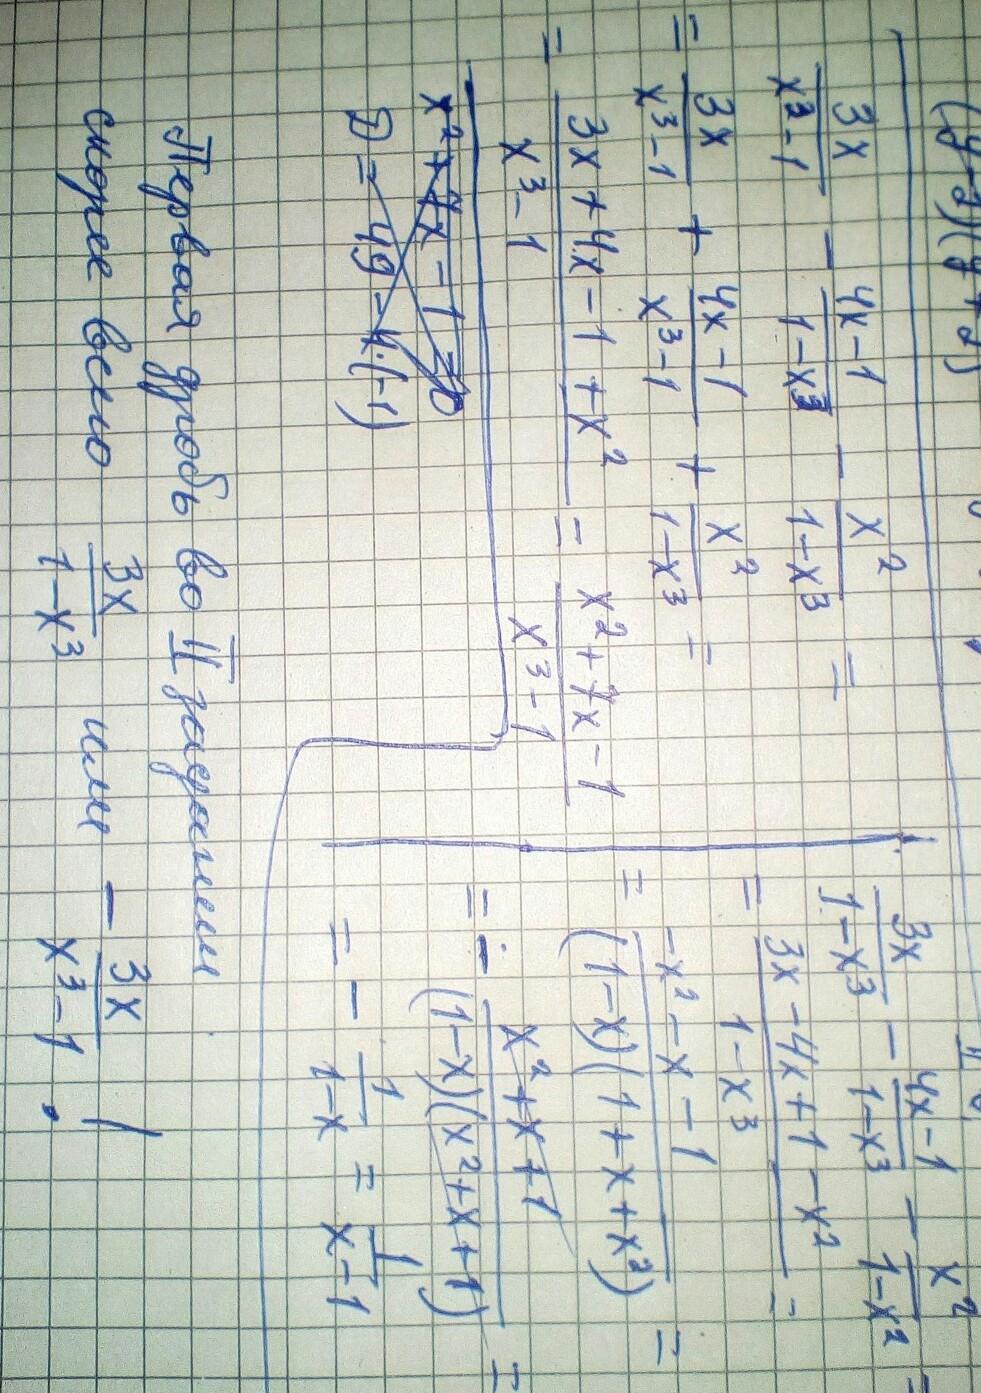 (y-2)(y+2)
3x/(x³-1) - (4x-1)/(1-x³) - x²/(1-x³) =
= 3x/(x³-1) + (4x-1)/(x³-1) + x²/(1-x³) =
= (3x+4x-1+x²)/(x³-1) = (x²+7x-1)/(x³-1)
x²+7x-1=0
D = 49-4·(-1)
3x/(1-x³) - (4x-1)/(1-x³) - x²/(1-x²) =
= (3x-4x+1-x²)/(1-x³) =
= (-x²-x-1)/((1-x)(1+x+x²)) =
= - (x²+x+1)/((1-x)(x²+x+1)) =
= - 1/(1-x) = 1/(x-1)
Первая дробь во II задании
скорее всего 3x/(1-x³) или - 3x/(x³-1) !